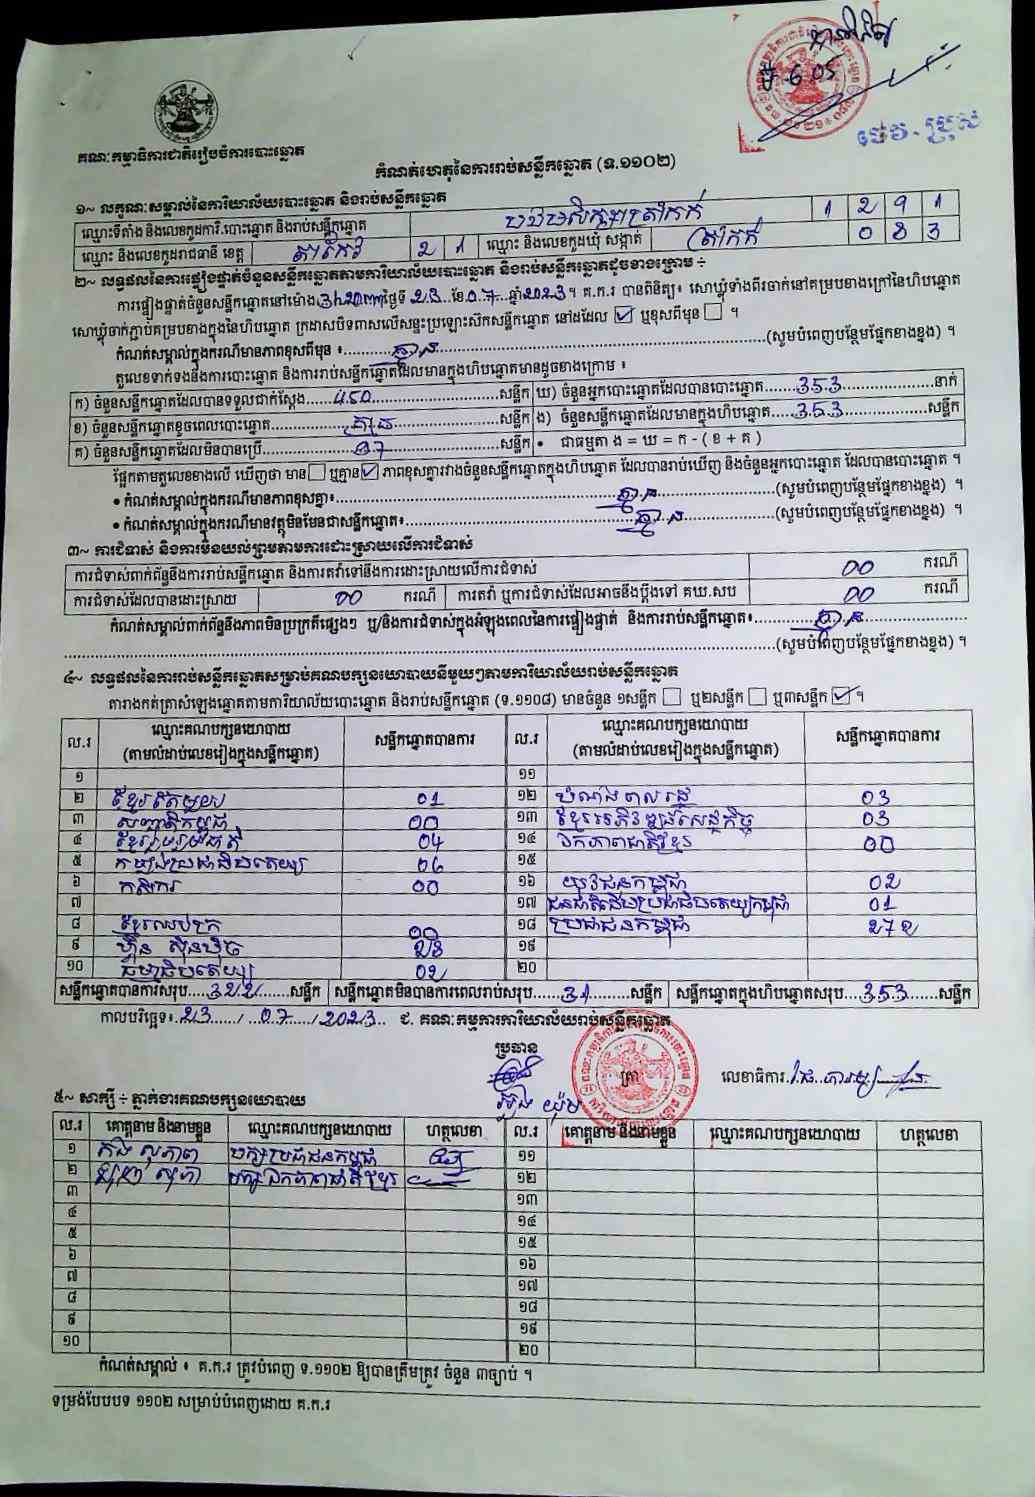 គណៈកម្មាធិការជាតិរៀបចំការបោះឆ្នោត
កំណត់ហេតុនៃការរាប់សន្លឹកឆ្នោត (ទ.១១០២)
១~ លក្ខណៈសម្គាល់នៃការិយាល័យបោះឆ្នោត និងរាប់សន្លឹកឆ្នោត
ឈ្មោះទីតាំង និងលេខកូដការិ.បោះឆ្នោត និងរាប់សន្លឹកឆ្នោត 1 2 9 1
ឈ្មោះ និងលេខកូដរាជធានី ខេត្ត តាកែវ 2 1 ឈ្មោះ និងលេខកូដឃុំ សង្កាត់ 0 8 3
២~ លទ្ធផលនៃការផ្ទៀងផ្ទាត់ចំនួនសន្លឹកឆ្នោតតាមការិយាល័យបោះឆ្នោត និងរាប់សន្លឹកឆ្នោតដូចខាងក្រោម ÷
ការផ្ទៀងផ្ទាត់ចំនួនសន្លឹកឆ្នោតនៅម៉ោង 3h20mm ថ្ងៃទី 23 ខែ 07 ឆ្នាំ 2023 ។ គ.ក.រ បានពិនិត្យ៖ សោឃ្លុំទាំងពីរចាក់នៅគម្របខាងក្រៅនៃហិបឆ្នោត
សោឃ្លុំចាក់ភ្ជាប់គម្របខាងក្នុងនៃហិបឆ្នោត ក្រដាសបិទពាសលើសន្ទះប្រឡោះសិកសន្លឹកឆ្នោត នៅដដែល ☑ ឬខុសពីមុន ☐ ។
កំណត់សម្គាល់ក្នុងករណីមានភាពខុសពីមុន ៖ គ្មាន (សូមបំពេញបន្ថែមផ្នែកខាងខ្នង) ។
តួលេខទាក់ទងនឹងការបោះឆ្នោត និងការរាប់សន្លឹកឆ្នោតដែលមានក្នុងហិបឆ្នោតមានដូចខាងក្រោម ៖
ក) ចំនួនសន្លឹកឆ្នោតដែលបានទទួលជាក់ស្តែង 450 សន្លឹក ឃ) ចំនួនអ្នកបោះឆ្នោតដែលបានបោះឆ្នោត 353 នាក់
ខ) ចំនួនសន្លឹកឆ្នោតខូចពេលបោះឆ្នោត គ្មាន សន្លឹក ង) ចំនួនសន្លឹកឆ្នោតដែលមានក្នុងហិបឆ្នោត 353 សន្លឹក
គ) ចំនួនសន្លឹកឆ្នោតដែលមិនបានប្រើ 97 សន្លឹក • ជាធម្មតា ង = ឃ = ក - ( ខ + គ )
ផ្អែកតាមតួលេខខាងលើ ឃើញថា មាន ☐ ឬគ្មាន ☑ ភាពខុសគ្នារវាងចំនួនសន្លឹកឆ្នោតក្នុងហិបឆ្នោត ដែលបានរាប់ឃើញ និងចំនួនអ្នកបោះឆ្នោត ដែលបានបោះឆ្នោត ។
• កំណត់សម្គាល់ក្នុងករណីមានភាពខុសគ្នា៖ គ្មាន (សូមបំពេញបន្ថែមផ្នែកខាងខ្នង) ។
• កំណត់សម្គាល់ក្នុងករណីមានវត្ថុមិនមែនជាសន្លឹកឆ្នោត៖ គ្មាន (សូមបំពេញបន្ថែមផ្នែកខាងខ្នង) ។
៣~ ការជំទាស់ និងការមិនយល់ព្រមតាមការដោះស្រាយលើការជំទាស់
ការជំទាស់ពាក់ព័ន្ធនឹងការរាប់សន្លឹកឆ្នោត និងការតវ៉ាទៅនឹងការដោះស្រាយលើការជំទាស់ 00 ករណី
ការជំទាស់ដែលបានដោះស្រាយ 00 ករណី ការតវ៉ា ឬការជំទាស់ដែលអាចនឹងប្តឹងទៅ គឃ.សប 00 ករណី
កំណត់សម្គាល់ពាក់ព័ន្ធនឹងភាពមិនប្រក្រតីផ្សេងៗ ឬ/និងការជំទាស់ក្នុងអំឡុងពេលនៃការផ្ទៀងផ្ទាត់ និងការរាប់សន្លឹកឆ្នោត៖ គ្មាន
(សូមបំពេញបន្ថែមផ្នែកខាងខ្នង) ។
៤~ លទ្ធផលនៃការរាប់សន្លឹកឆ្នោតសម្រាប់គណបក្សនយោបាយនីមួយៗតាមការិយាល័យរាប់សន្លឹកឆ្នោត
តារាងកត់ត្រាសំឡេងឆ្នោតតាមការិយាល័យបោះឆ្នោត និងរាប់សន្លឹកឆ្នោត (ទ.១១០៨) មានចំនួន ១សន្លឹក ☐ ឬ២សន្លឹក ☐ ឬ៣សន្លឹក ☑ ។
ល.រ ឈ្មោះគណបក្សនយោបាយ (តាមលំដាប់លេខរៀងក្នុងសន្លឹកឆ្នោត) សន្លឹកឆ្នោតបានការ ល.រ ឈ្មោះគណបក្សនយោបាយ (តាមលំដាប់លេខរៀងក្នុងសន្លឹកឆ្នោត) សន្លឹកឆ្នោតបានការ
១ ១១
២ ខ្មែរតែមួយ 01 ១២ សំណាងពលរដ្ឋ 03
៣ សញ្ជាតិកម្ពុជា 00 ១៣ ខ្មែរអភិវឌ្ឍន៍សេដ្ឋកិច្ច 03
៤ ខ្មែររួបរួមជាតិ 04 ១៤ ឯកភាពជាតិខ្មែរ 00
៥ កម្លាំងប្រជាធិបតេយ្យ 06 ១៥
៦ កសិករ 00 ១៦ យុវជនកម្ពុជា 02
៧ ១៧ ជនជាតិដើមប្រជាធិបតេយ្យកម្ពុជា 01
៨ ខ្មែរឈប់ក្រ ១៨ ប្រជាជនកម្ពុជា 272
៩ ហ៊្វុនស៊ិនប៉ិច ១៩
១០ ធម្មាធិបតេយ្យ 02 ២០
សន្លឹកឆ្នោតបានការសរុប 322 សន្លឹក សន្លឹកឆ្នោតមិនបានការពេលរាប់សរុប 31 សន្លឹក សន្លឹកឆ្នោតក្នុងហិបឆ្នោតសរុប 353 សន្លឹក
កាលបរិច្ឆេទ៖ 23 / 07 / 2023 ជ. គណៈកម្មការការិយាល័យរាប់សន្លឹកឆ្នោត
ប្រធាន
ត្រា
លេខាធិការ
៥~ សាក្សី ÷ ភ្នាក់ងារគណបក្សនយោបាយ
ល.រ គោត្តនាម និងនាមខ្លួន ឈ្មោះគណបក្សនយោបាយ ហត្ថលេខា ល.រ គោត្តនាម និងនាមខ្លួន ឈ្មោះគណបក្សនយោបាយ ហត្ថលេខា
១ កង សុភាព បក្សប្រជាជនកម្ពុជា ១១
២ បក្សឯកភាពជាតិខ្មែរ ១២
៣ ១៣
៤ ១៤
៥ ១៥
៦ ១៦
៧ ១៧
៨ ១៨
៩ ១៩
១០ ២០
កំណត់សម្គាល់ ៖ គ.ក.រ ត្រូវបំពេញ ទ.១១០២ ឱ្យបានត្រឹមត្រូវ ចំនួន ៣ច្បាប់ ។
ទម្រង់បែបបទ ១១០២ សម្រាប់បំពេញដោយ គ.ក.រ